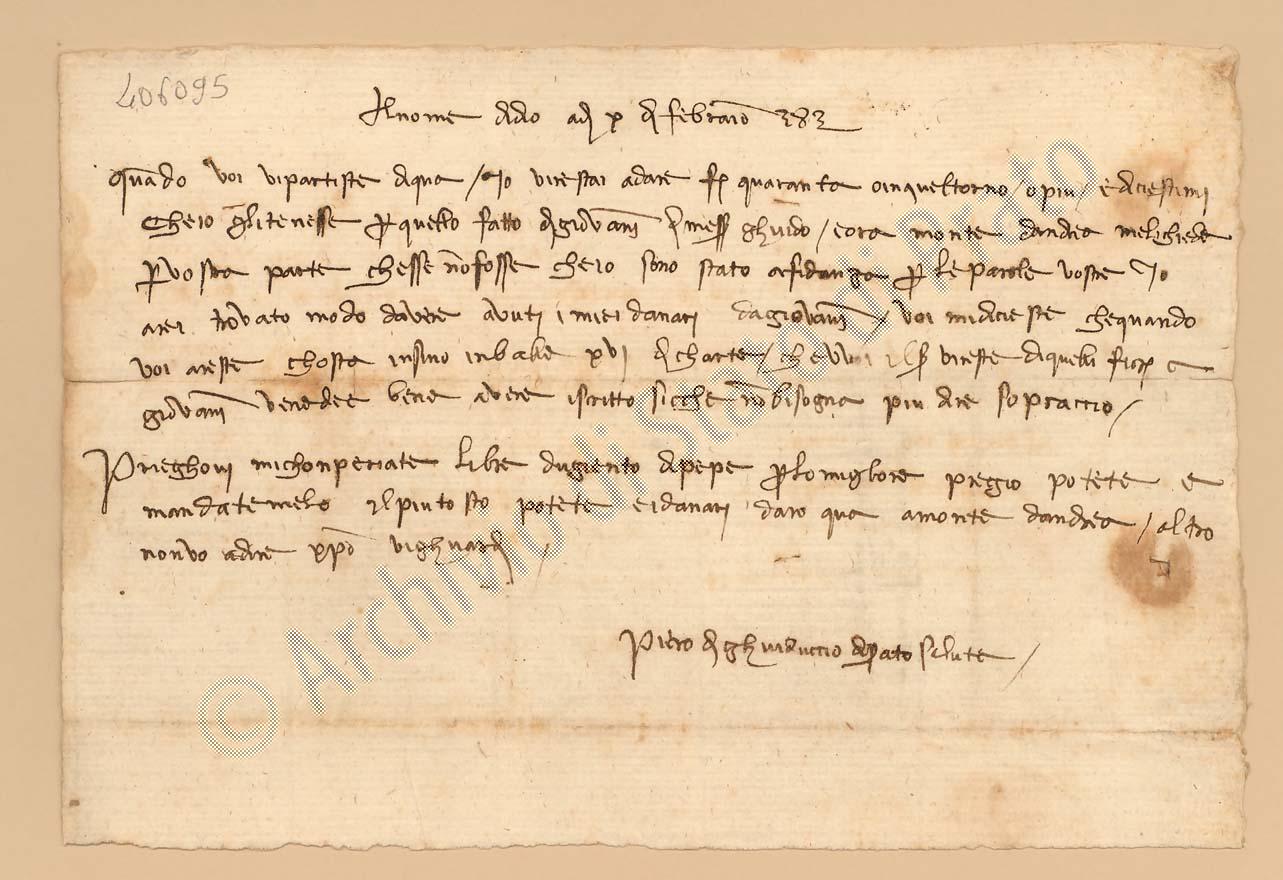 406095
Al nome di dio adi x di febraio 383
Quado voi vi partiste di qua / Io vi restai a dare f. quaranta o in quel torno / o piu / e dicestimi
che io gli tenesse p quello fatto di giovani mess ghuido / e ora monte dandrea me li chiede
p vostra parte che sse no fosse che io sono stato a fidanza p le parole vostre Io
arei trovato modo davere avuti i miei danari da giovani / voi mi diceste che quando
voi areste chosta insino in balle xvi di charte / che di quelli
giovani bene avere iscritto sicche no bisogna piu dire sopraccio /
Prieghovi mi chonperiate libre dugiento di pepe p lo miglore pregio potete e
mandatemelo il piu tosto potete e i danari daro qua a monte dandrea / altro
non vo a dire xpo vi ghuardi /
Piero di ghuiduccio di prato salute /
© Archivio di Stato di Prato